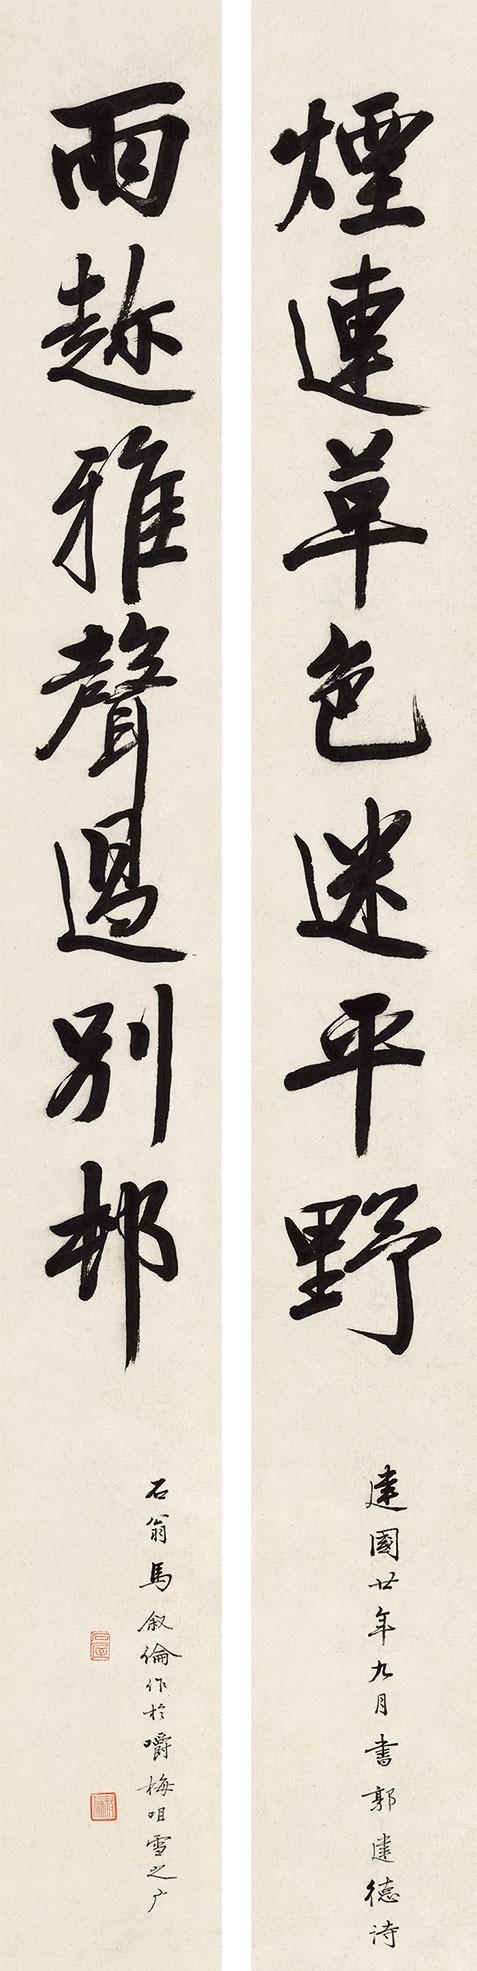 煙連草色迷平野
建國廿年九月書郭建德诗
雨趂雅聲過別邨
石翁馬叙倫作於嚼梅咀雪之广